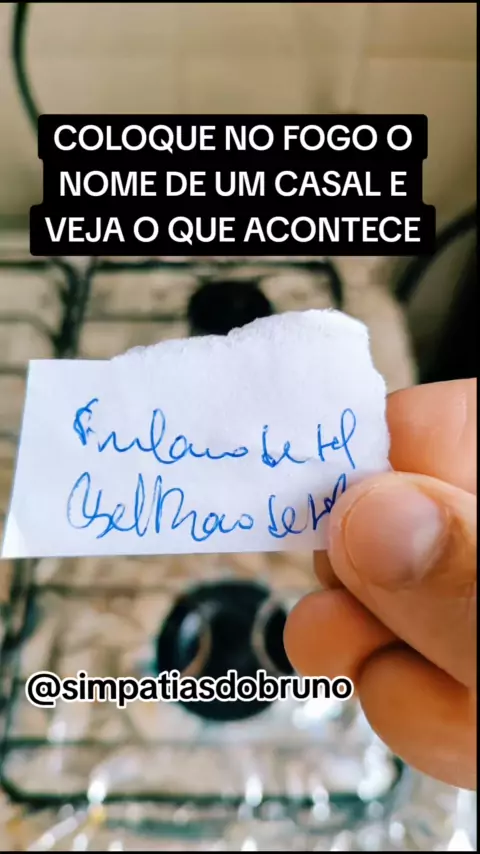 COLOQUE NO FOGO O
NOME DE UM CASAL E
VEJA O QUE ACONTECE
Fulano de tal
Beltrano de tal
@simpatiasdobruno